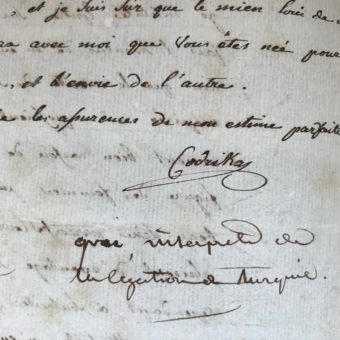 , et je suis sur que le mien loin de
ra avec moi que vous êtes né pour
, et l'envie de l'autre.
les assurences de mon estime parfaite
Codrika
grec interprete de
la légation de Turquie.